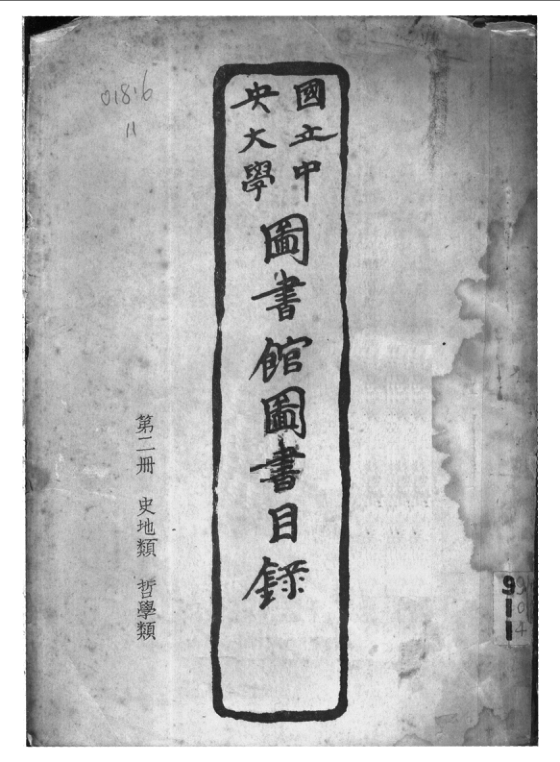 國立中
央大學
圖書館圖書目錄
第二冊 史地類 哲學類
018.6
11
911